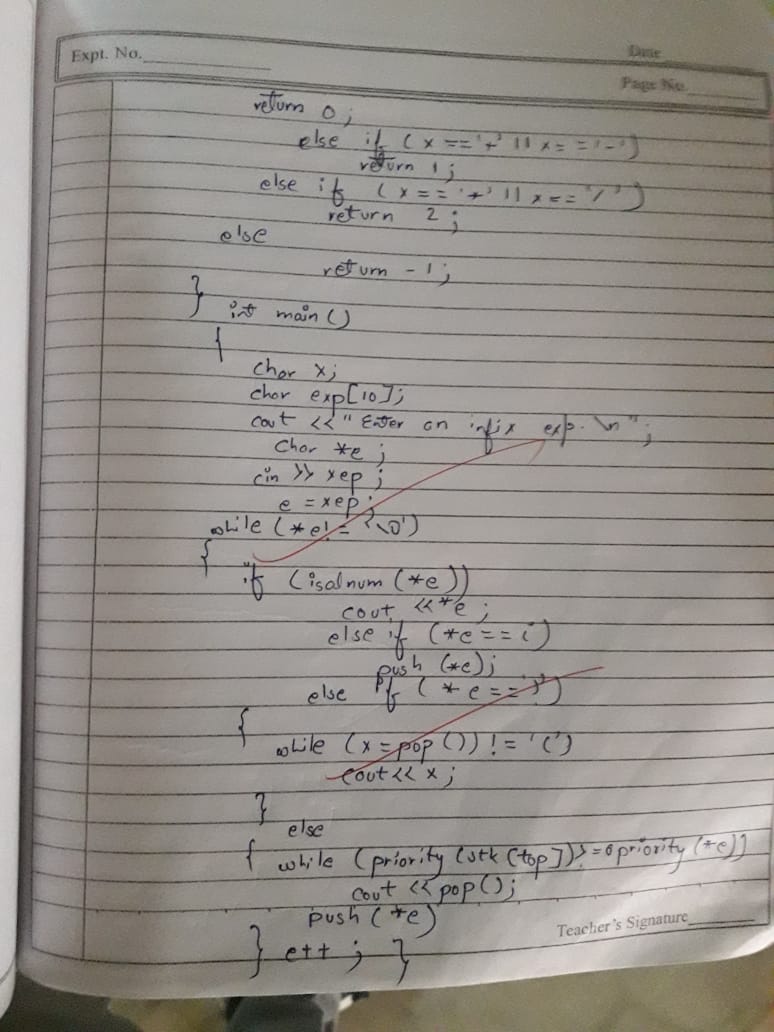 Expt. No.
Date
Page No.
return 0;
else if (x=='+' || x=='-')
return 1;
else if (x=='*' || x=='/')
return 2;
else
return -1;
}
int main()
{
char x;
char exp[10];
cout <<" Enter an infix exp. \n";
char *e;
cin >> xep;
e = xep;
while (*e!= '\0')
{
if (isalnum (*e))
cout <<*e;
else if (*e==i)
push (*e);
else if (*e==')')
{
while (x=pop()) != '(')
cout<< x;
}
else
{ while (priority (stk [top])>= priority (*e)]
cout <<pop();
push (*e)
} e++; }
Teacher's Signature